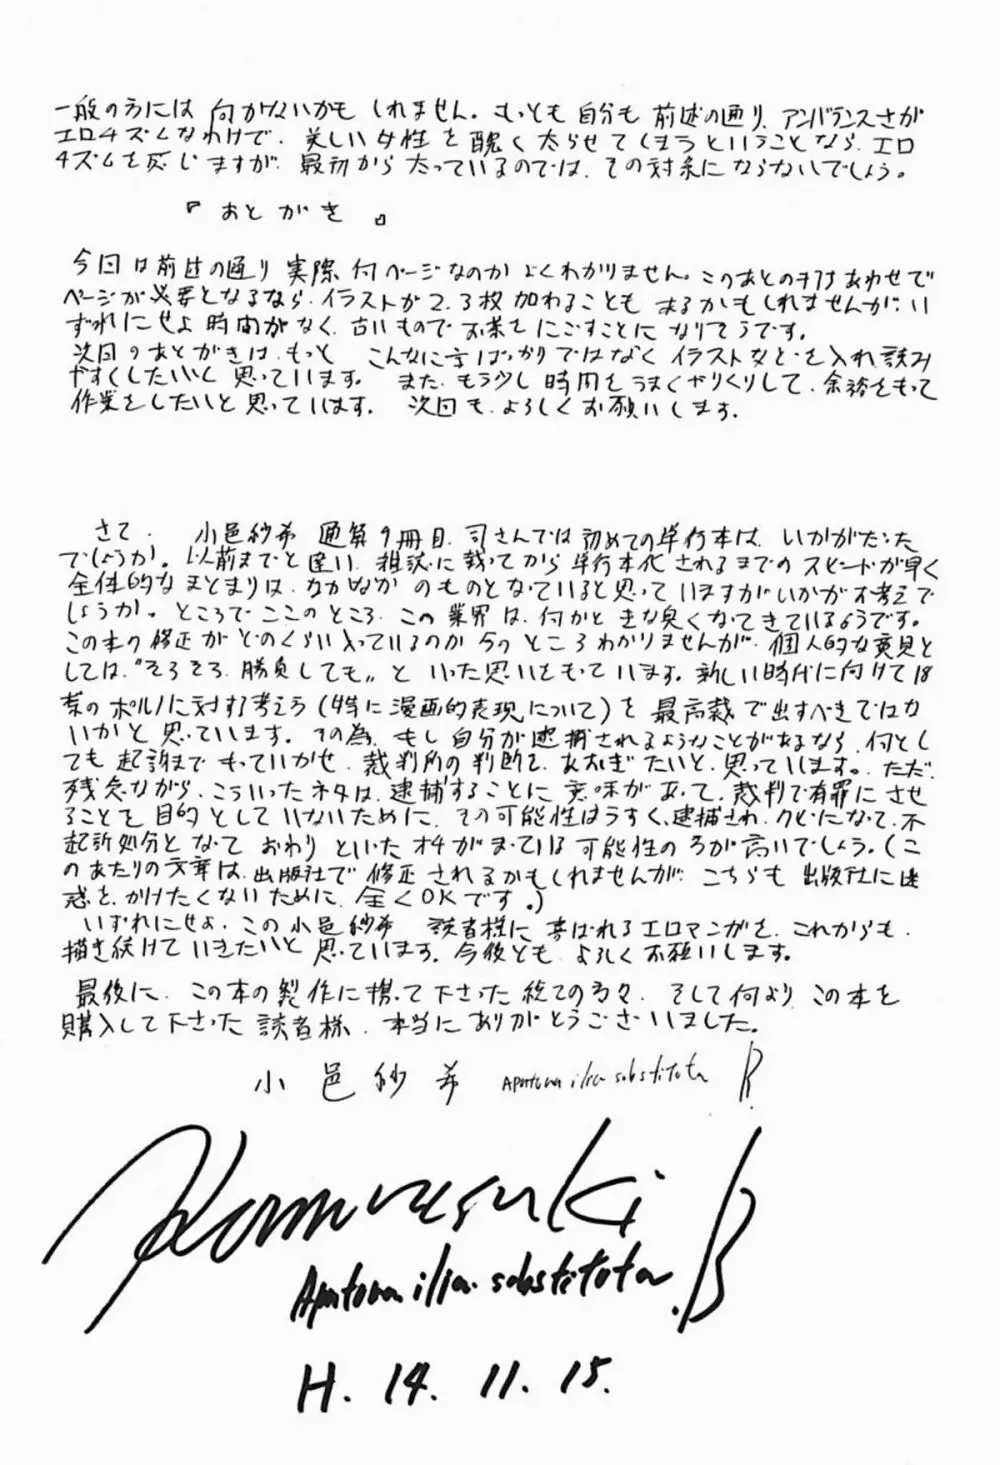 一般の方には 向かないかも しれません。もっとも 自分も 前述の通り、アンバランスさが
エロチズムなわけで、美しい女性を 醜く 太らせて しまうということなら、エロ
チズムを感じますが、最初から 太っているのでは、その対象に ならないでしょう。
『 あとがき 』
今回は前述の通り 実際 何ページなのか よくわかりません。このあとの打ちあわせで
ページが必要となるなら、イラストが2、3枚 加わることも あるかもしれませんが、い
ずれにせよ 時間がなく、古いもので お茶を にごすことに なりそうです。
次回のあとがきは、もっと こんなに字ばっかりではなく イラストなどを 入れ読み
やすくしたいと 思っています。また、もう少し 時間をうまくやりくりして、余裕をもって
作業をしたいと思っています。 次回も、よろしくお願いします。
さて、 小邑紗希 通算9冊目、司さんでは 初めての単行本は、いかがだった
でしょうか。以前までと違い、雑誌に載ってから 単行本化されるまでの スピードが早く
全体的な まとまりは、なかなか のものとなっていると思っていますがいかがお考えで
しょうか。ところで ここのところ、この業界は、何かと きな臭くなってきているようです。
この本の修正が どのくらい入っているのか 今のところ わかりませんが、個人的な意見と
しては、"そろそろ、勝負しても〟と いった思いをもっています。新しい時代に向けて18
禁のポルノに対する考え方(特に漫画的表現について)を 最高裁で出すべきではな
いかと思っています。その為、もし自分が逮捕されるようなことがあるなら、何とし
ても 起訴まで もっていかせ、裁判所の判断を、あおぎたいと、思っています。ただ、
残念ながら、こういったネタは、逮捕することに 意味があって、裁判で有罪に させ
ることを目的としていないために、その可能性はうすく、逮捕され、クビになって、不
起訴処分となって おわり といった オチがまっている可能性の方が高いでしょう。(こ
のあたりの文章は、出版社で修正されるかもしれませんが、こちらも 出版社に迷
惑を、かけたくないために、全くOKです。)
いずれにせよ、この小邑紗希 読者様に 喜ばれるエロマンガを、これからも、
描き続けていきたいと思っています。今後とも、よろしくお願いします。
最後に、この本の製作に携って下さった 総ての方々、そして何より、この本を
購入して下さった 読者様、本当にありがとうございました。
小邑紗希 Apatura ilia substituta B.
Komurasaki
Apatura ilia substituta .B
H. 14. 11. 15.